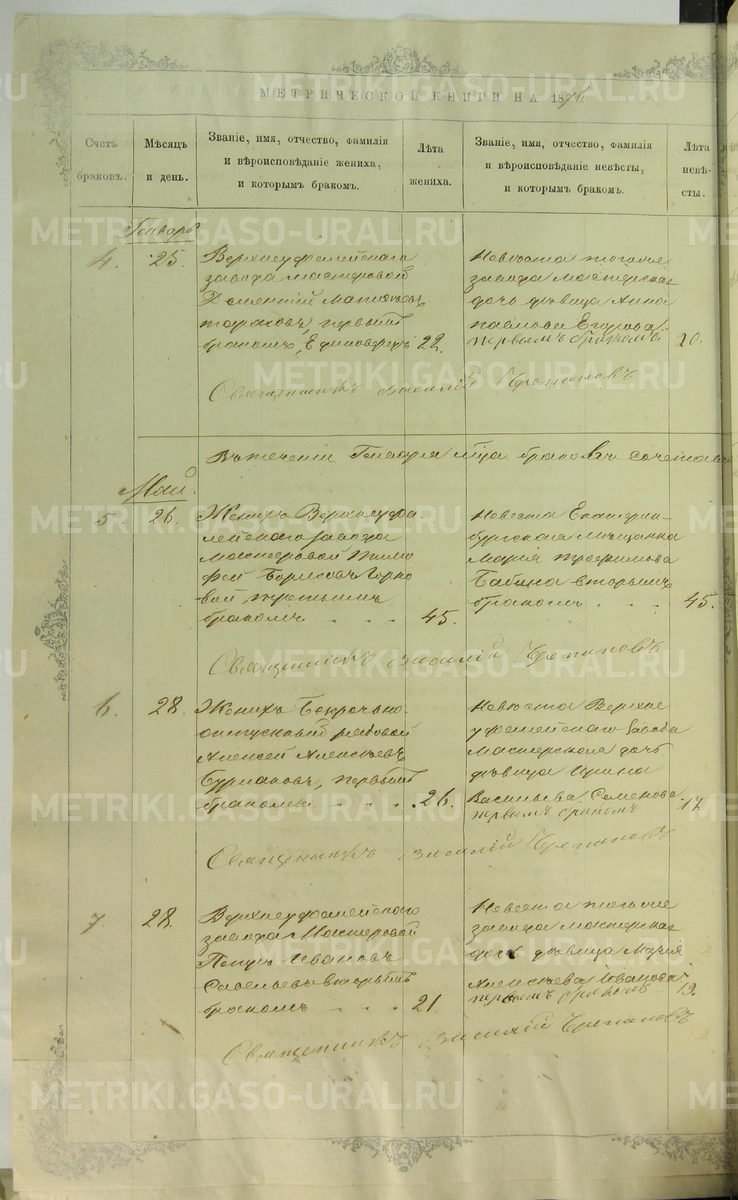 МЕТРИЧЕСКОЙ КНИГИ НА 1876
Счетъ браковъ.
Мѣсяцъ и день.
Званіе, имя, отчество, фамилія и вѣроисповѣданіе жениха, и которымъ бракомъ.
Лѣта жениха.
Званіе, имя, отчество, фамилія и вѣроисповѣданіе невѣсты, и которымъ бракомъ.
Лѣта невѣсты.
Генварь
4. 25.
Верхнеуфалейскаго
завода мастеровой
первымъ
бракомъ, Единоверецъ 22.
Невѣста тогоже
завода мастерская
дочь дѣвица Анна
Павлова Егорова
первымъ бракомъ 20.
Священникъ Василій
Въ теченіи Генваря м‑ца браковъ
Май.
5 26.
Женихъ Верхнеуфа
лейскаго завода
Мастеровой Тимо
фей Борисовъ Горно
вой, третьимъ
бракомъ . . . 45.
Невеста Екатерин-
бургская Мѣщанка
Марія Трефилова
Бабина вторымъ
бракомъ . . . 45.
Священникъ Василій
6. 28.
Женихъ Безсрочно
отпускный рядовой
Алексей Алексѣевъ
Бурмаковъ, первымъ
бракомъ . . . . 26.
Невѣста Верхне
уфалейскаго завода
Мастерская дочь
дѣвица Ирина
Васильева Семенова
первымъ бракомъ 17.
Священникъ Василій
7 28.
Верхнеуфалейскаго
завода Мастеровой
Петръ Ивановъ
Савельевъ вторымъ
бракомъ . . . 21.
Невеста тогоже
завода мастерская
дочь дѣвица Марія
Алексѣева Иванова
первымъ бракомъ 19.
Священникъ Василій
METRIKI.GASO-URAL.RU